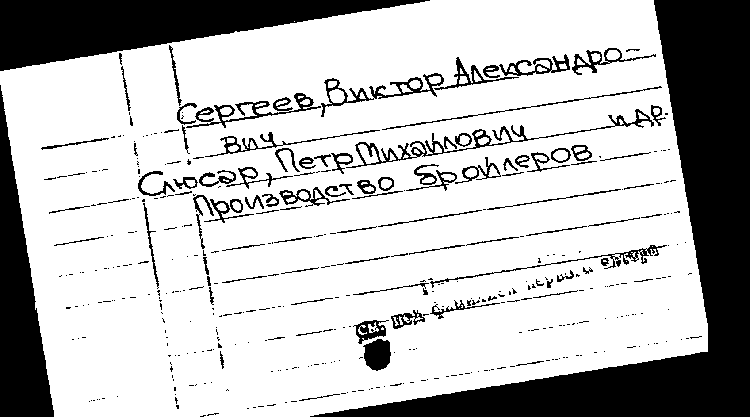 Сергеев, Виктор Александро-
вич.
Слюсар, Петр Михайлович и др.
Производство бройлеров.
см. под фамилией первого автора